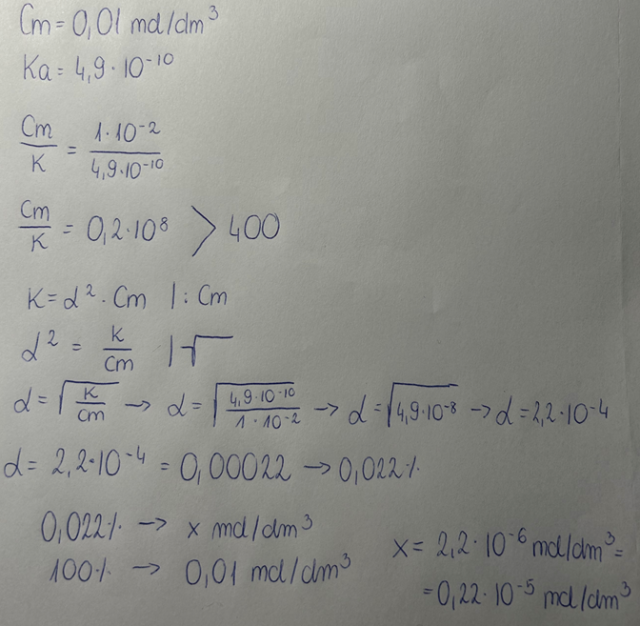 Cm = 0,01 mol/dm³
Ka = 4,9 · 10⁻¹⁰
Cm/K = 1·10⁻²/4,9·10⁻¹⁰
Cm/K = 0,2·10⁸ > 400
K = α² · Cm |: Cm
α² = K/Cm |√
α = √(K/Cm) → α = √(4,9·10⁻¹⁰/1·10⁻²) → α = √(4,9·10⁻⁸) → α = 2,2·10⁻⁴
α = 2,2·10⁻⁴ = 0,00022 → 0,022%
0,022% → x mol/dm³
100% → 0,01 mol/dm³
x = 2,2·10⁻⁶ mol/dm³ =
= 0,22·10⁻⁵ mol/dm³